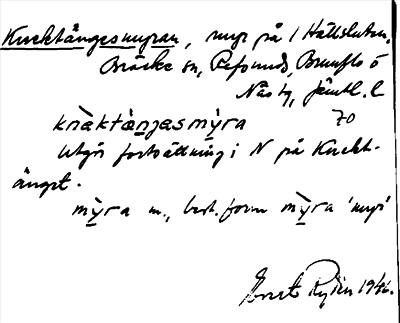 Knektängesmyran, myr på / Hällsluten.
Bräcke sn, Refsunds, Brunflo o
Näs tg, Jämtl. l
knàktàŋgasmỳra 70
Utgör fortsättning i N på Knekt-
änget.
mỳra m., best. form mỳra 'myr'
Ernst Rydén 1946.